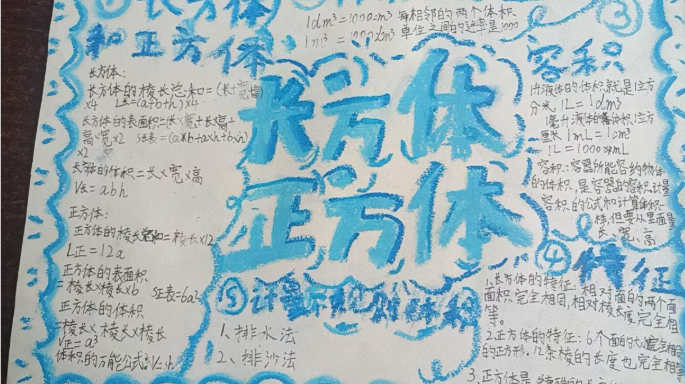 长方体
和正方体
长方体:
长方体的棱长总和=(长+宽+高)
×4 L长=(a+b+h)×4
长方体的表面积=(长×宽+长×高+
高×宽)×2 S长表=(a×b+a×h+b×h)
×2
长方体的体积=长×宽×高
V长=abh
正方体:
正方体的棱长总和=棱长×12
L正=12a
正方体的表面积
=棱长×棱长×6 S正表=6a²
正方体的体积
=棱长×棱长×棱长
V正=a³
体积的万能公式:V=sh
1dm³=1000cm³ 每相邻的两个体积
1m³=1000dm³ 单位之间的进率是1000
长方体
正方体
③
容积
1升液体的体积就是1立方
分米 1L=1dm³
1毫升液体的体积1立方
厘米 1mL=1cm³
1L=1000mL
容积:容器所能容纳物体
的体积,是容器的容积,计量
容积的公式和计算体积一
样,但要从里面量
长、宽、高
④特征
1.长方体的特征:相对面的两个面
面积完全相同,相对棱长度完全相
等。
2.正方体的特征:6个面的大小完全相同
的正方形.12条棱的长度也完全相等
3.正方体是特殊的
⑤计量不规则物体体积
1、排水法
2、排沙法